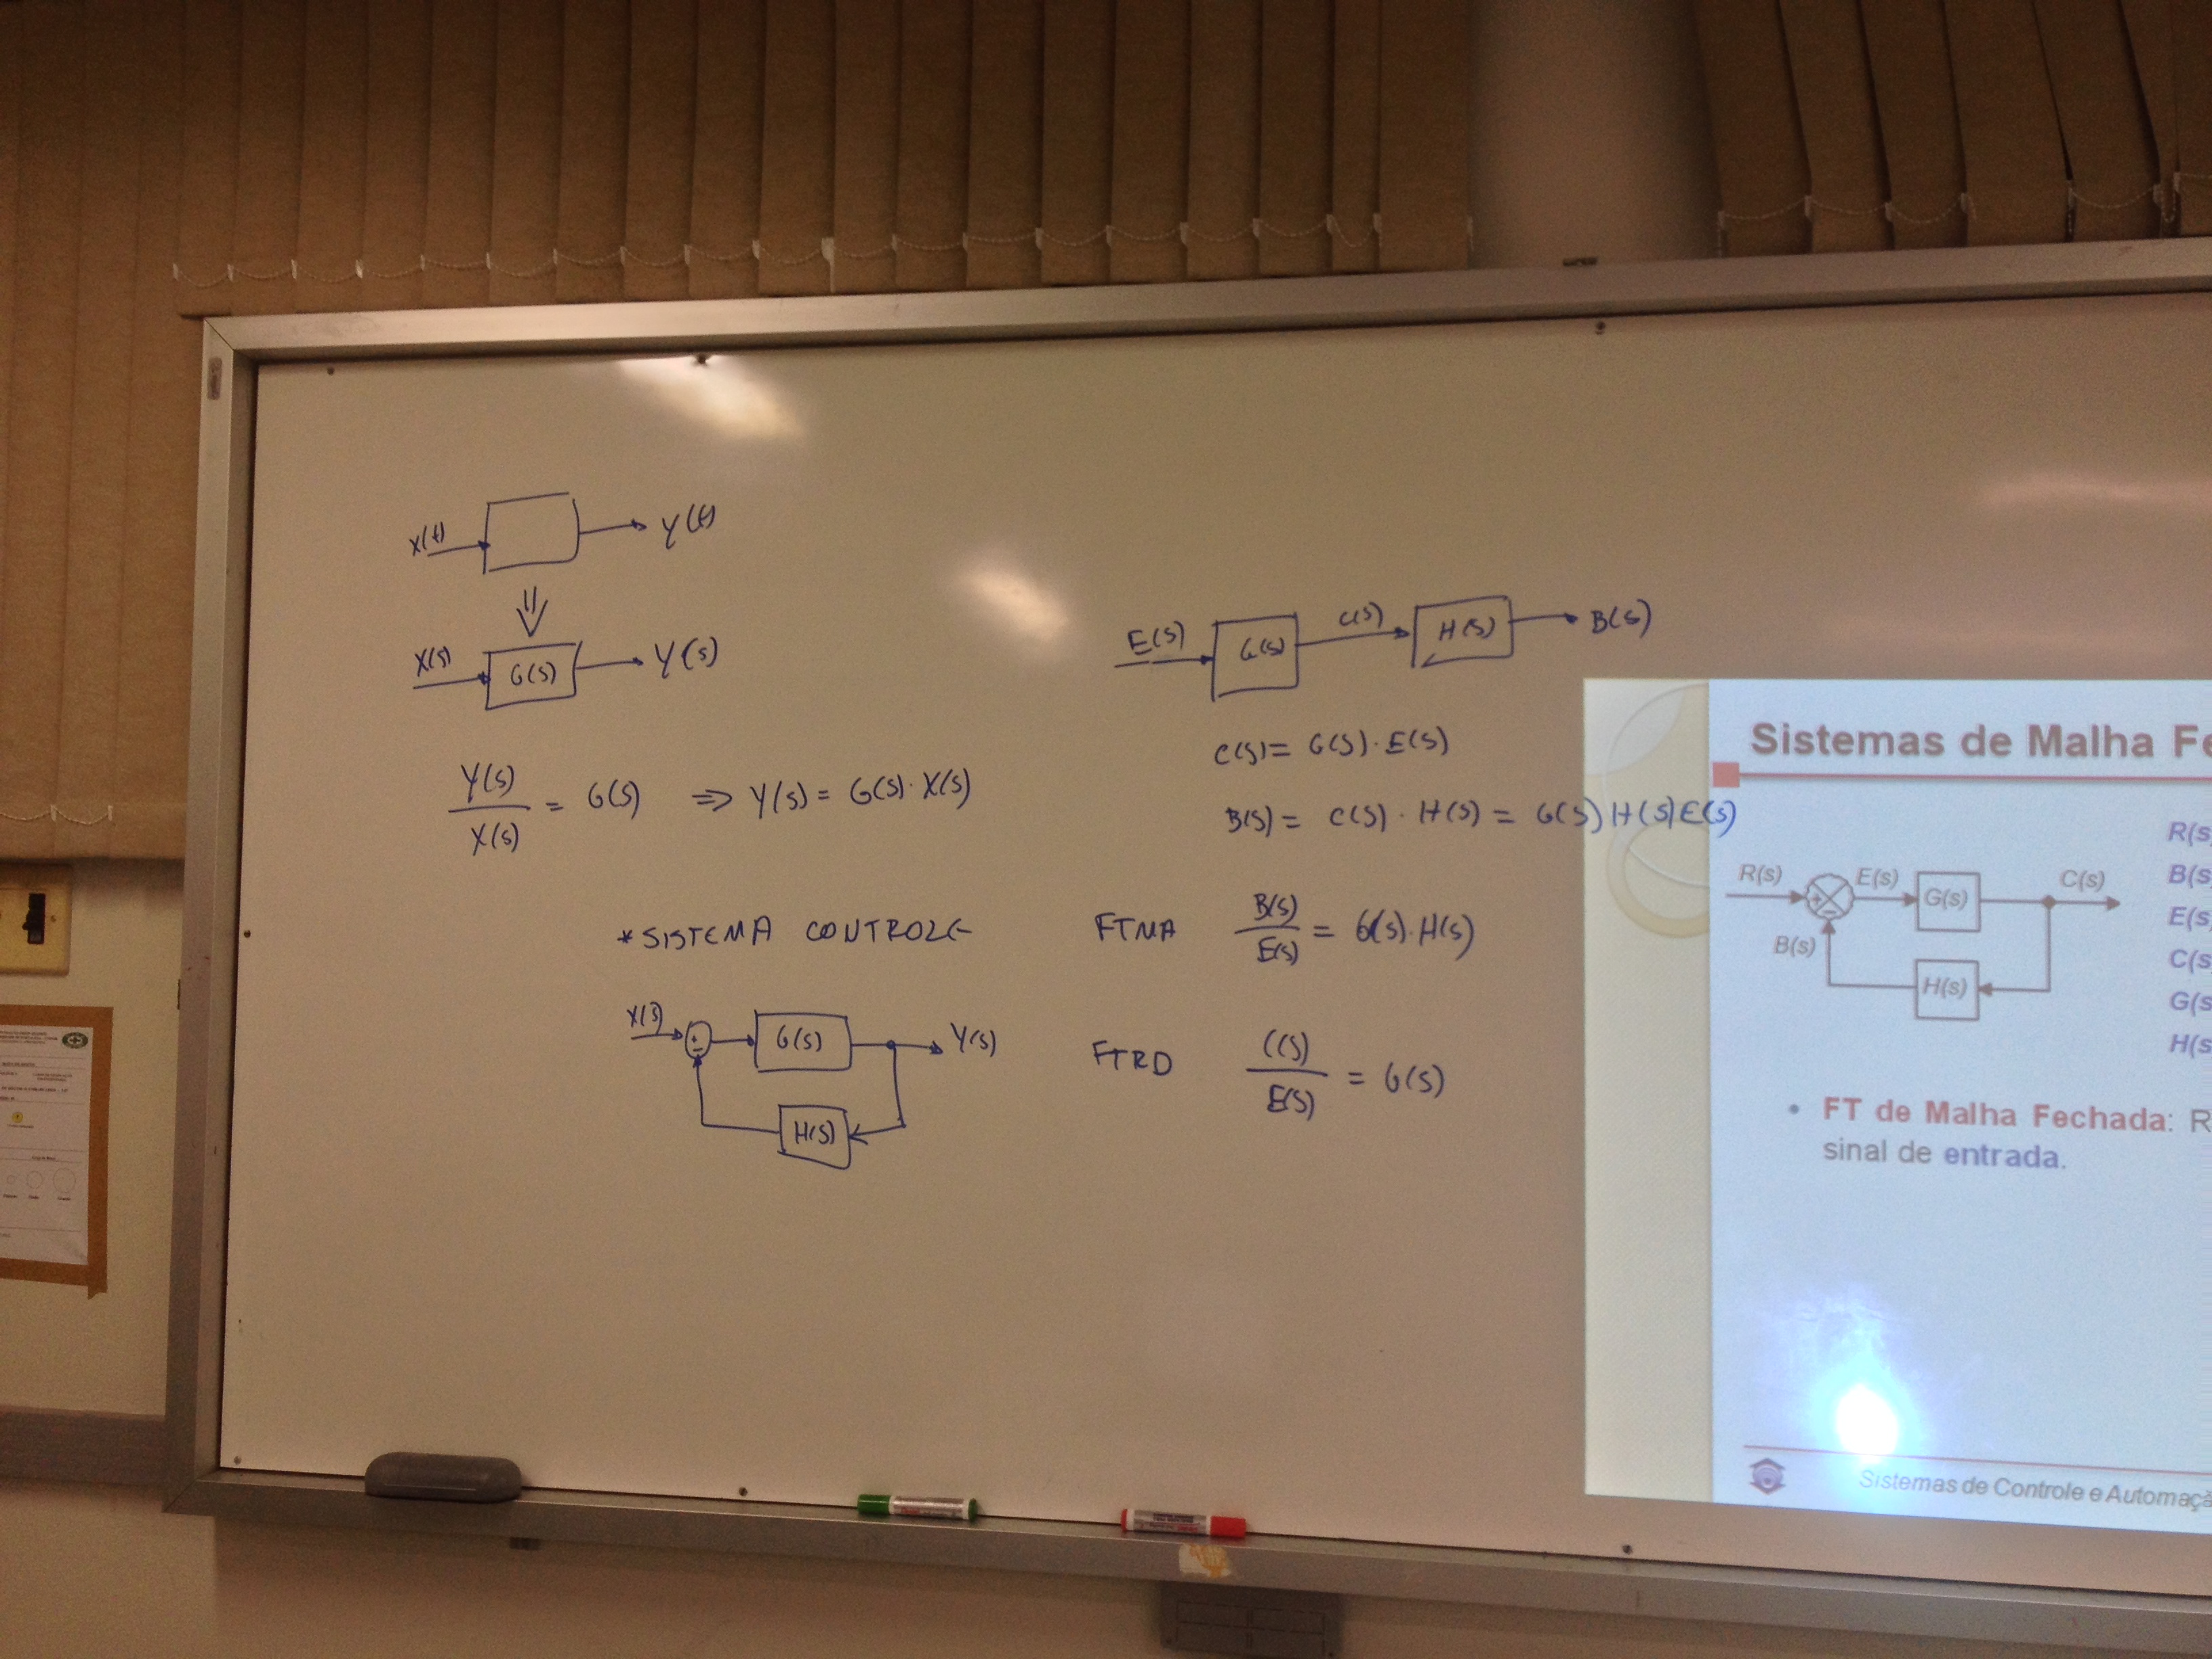 X(t) Y(t)
X(s) G(s) Y(s)
Y(s)/X(s) = G(s) ⇒ Y(s) = G(s)·X(s)
*SISTEMA CONTROLE
X(s) + - G(s) Y(s)
H(s)
E(s) G(s) C(s) H(s) B(s)
C(s) = G(s)·E(s)
B(s) = C(s)·H(s) = G(s)H(s)E(s)
FTMA B(s)/E(s) = G(s)·H(s)
FTRD C(s)/E(s) = G(s)
Sistemas de Malha Fe
R(s) + - E(s) G(s) C(s)
B(s) H(s)
R(s
B(s
E(s
C(s
G(s
H(s
• FT de Malha Fechada: R
sinal de entrada.
Sistemas de Controle e Automaçã